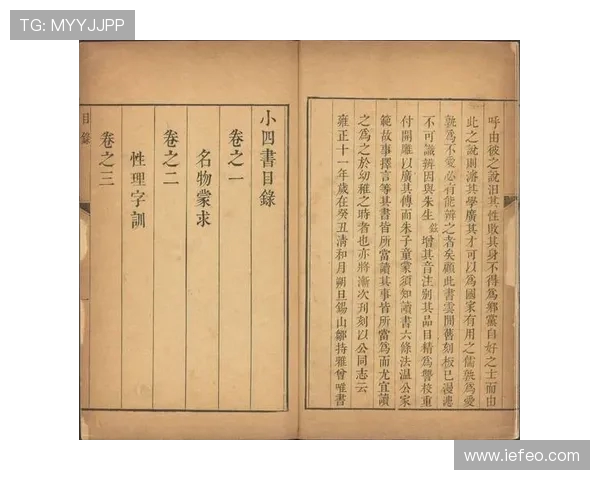 TG: MYYJJPP
呼由彼之說汨其性敗其身不得為鄉黨自好之士而由
此之說則濬其學廣其才可以為國家有用之儒孰為愛
孰為不愛必有能辨之者矣顧此書雲間舊刻板已漫漶
不可識辨因與朱生茲增其音注別其品目精為讐校重
付開雕以廣其傳而朱子童蒙須知讀書六條法溫公家
範故事擇言等其書皆所當讀其事皆所當為而尤宜讀
之為之於幼稚之時者也亦將漸次刋刻以公同志云
雍正十一年歲在癸丑清和月朔旦錫山鄒持雅曾唯書
小四書目錄
卷之一
名物蒙求
卷之二
性理字訓
卷之三
目錄
一
www.iefeo.com